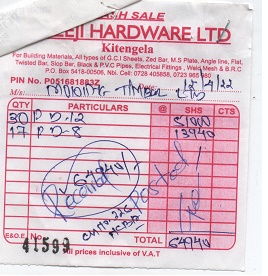 CASH SALE
EJI HARDWARE LTD
Kitengela
For Building Materials, All types of G.C.I Sheets, Zed Bar, M.S Plate, Angle line, Flat,
Twisted Bar, Slop Bar, Black & P.V.C Pipes, Electrical Fittings , Weld Mesh & B.R.C
P.O. Box 5418-00506, Nbi. Cell: 0728 405858, 0723 965
PIN No. P051681883Z
M/s: TIMBER LTD
QTY PARTICULARS @ SHS CTS
30 PD-12 51000
17 PD-8 13940
64940/-
Received
posted
E&O.E. No. 41599 TOTAL 64940
All prices inclusive of V.A.T